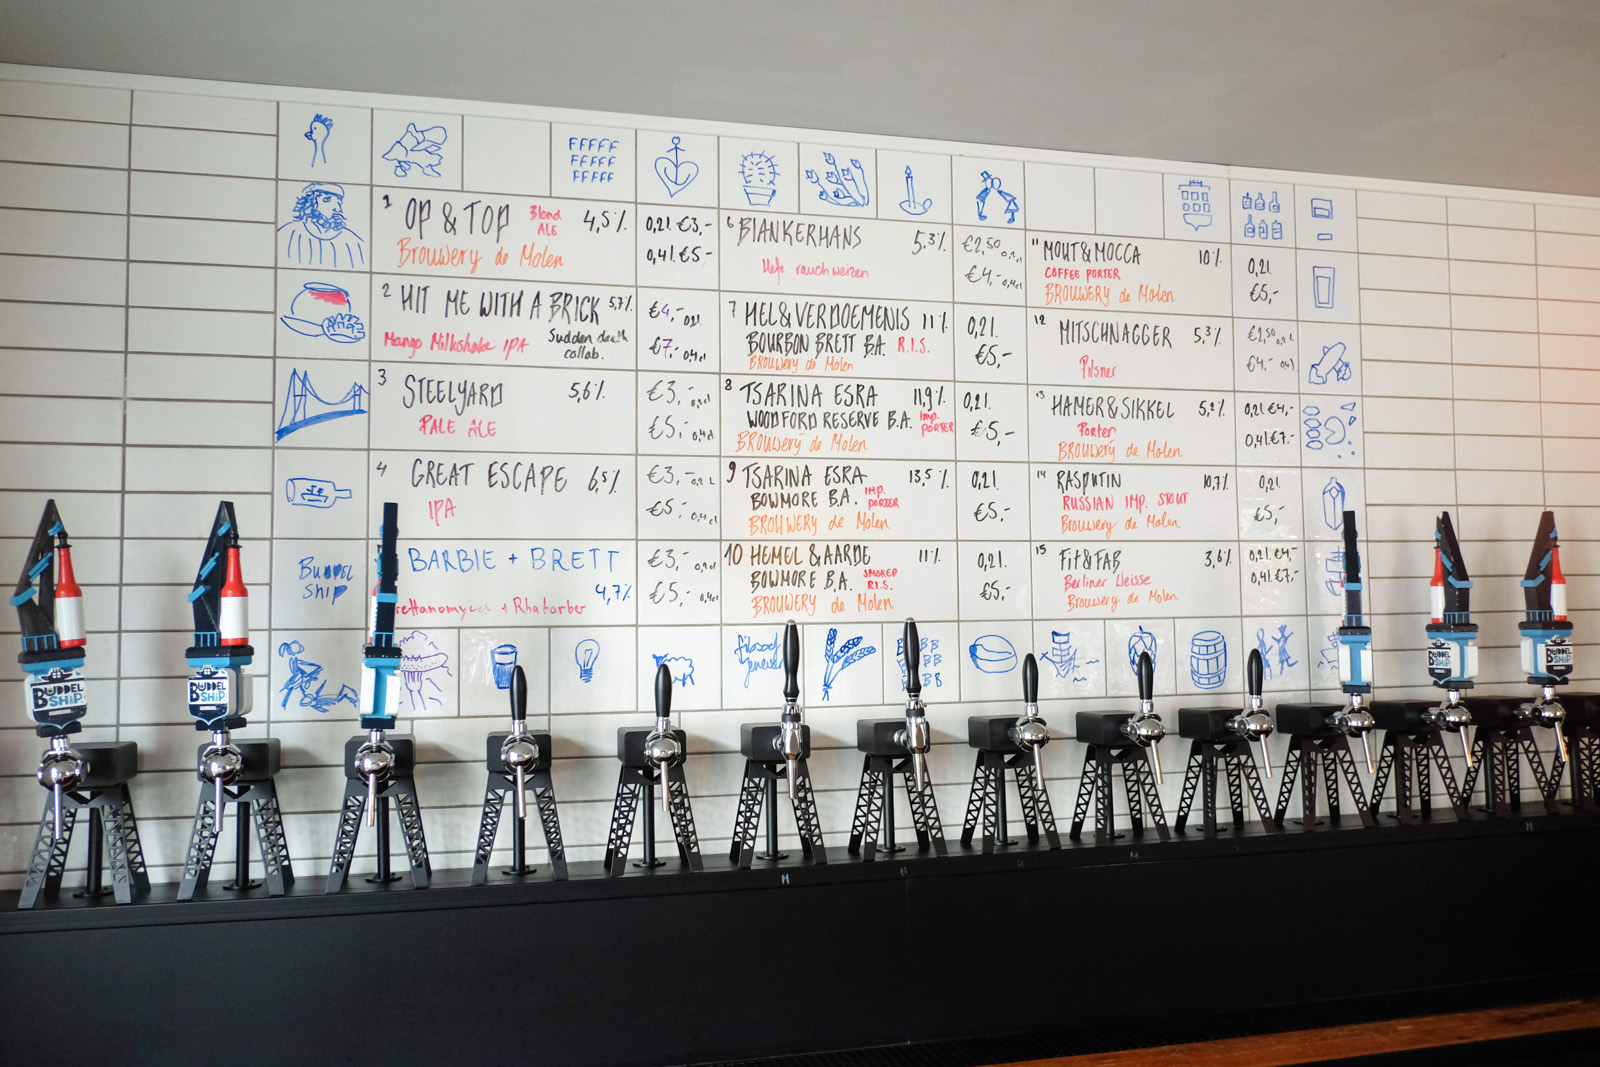 FFFFF
FFFFF
FFFFF
1 OP & TOP Blond ALE 4,5% 0,2l €3,-
Brouwery de Molen 0,4l €5-
2 HIT ME WITH A BRICK 5,7% €4,- 0,2l
Mango Milkshake IPA Sudden death collab. €7,- 0,4cl
3 STEELYARD 5,6% €3,- 0,2cl
PALE ALE €5,- 0,4cl
4 GREAT ESCAPE 6,5% €3,- 0,2L
IPA €5,- 0,4cl
BARBIE + BRETT €3,- 0,2cl
4,7% €5,- 0,4cl
rettanomyces + Rhabarber
6 BLANKERHANS 5,3% €2,50 0,2cl
Hefe rauchweizen €4,- 0,4cl
7 HEL & VERDOEMENIS 11% 0,2l.
BOURBON BRETT B.A. R.I.S. €5,-
BROUWERY de Molen
8 TSARINA ESRA 11,9% 0,2l.
WOODFORD RESERVE B.A. Imp. PORTER €5,-
BROUWERY de Molen
9 TSARINA ESRA 13,5% 0,2l.
BOWMORE B.A. IMP. PORTER €5,-
BROUWERY de Molen
10 HEMEL & AARDE 11% 0,2l.
BOWMORE B.A. SMOKED R.I.S. €5,-
BROUWERY de Molen
11 MOUT & MOCCA 10% 0,2l.
COFFEE PORTER €5,-
BROUWERY de Molen
12 MITSCHNAGGER 5,3% €2,50 0,2l
Pilsner €4,- 0,4l
13 HAMER & SIKKEL 5,2% 0,2l €4,-
Porter 0,4l €7,-
BROUWERY de Molen
14 RASPUTIN 10,7% 0,2l.
RUSSIAN IMP. STOUT €5,-
Brouwery de Molen
15 Fit & FAB 3,6% 0,2l €4,-
Berliner Weisse 0,4l €7,-
Brouwery de Molen
BUDDEL
SHIP
BUDDEL
SHIP
BUDDEL
SHIP
BUDDEL
SHIP
BUDDEL
SHIP